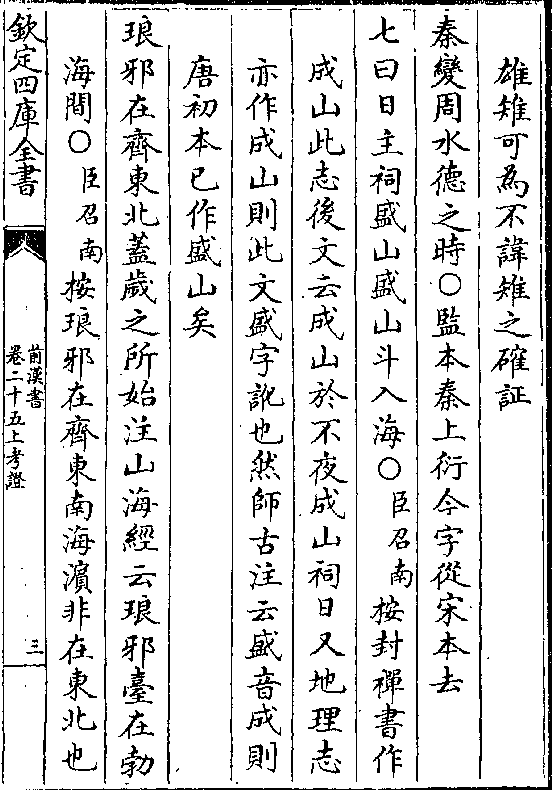 雄雉可為不諱雉之確証
秦變周水德之時○監本秦上衍今字從宋本去
七曰日主祠盛山盛山斗入海○臣召南按封禪書作
成山此志後文云成山於不夜成山祠日又地理志
亦作成山則此文盛字訛也然師古注云盛音成則
唐初本已作盛山矣
琅邪在齊東北蓋歲之所始注山海經云琅邪臺在勃
海間○臣召南按琅邪在齊東南海濵非在東北也
欽定四庫全書
前漢書
卷二十五上考證
三